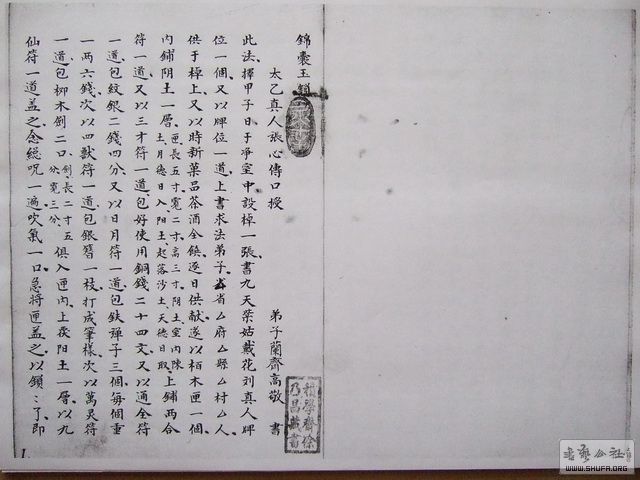 錦囊玉鎖
太乙真人張心傳口授
弟子蘭齋高敬書
此法擇甲子日于净室中設棹一張書九天柴姑戴花刘真人牌
位一個又以牌位一道上書求法弟子厶省厶府厶縣厶村厶人
供于棹上又以時新菓品茶酒仝饒逐日供献遂以栢木匣一個
内鋪阴土一層匣長五寸寬二寸高三寸阴土室内陳土月德日入阳土起落沙土天德日取上鋪两合
符一道又以三才符一道包好使用銅錢二十四文又以通全符
一道包紋銀二錢四分又以日月符一道包鈇弹子三個每個重
一两六錢次以四獸符一道包銀簪一枝打成筆樣次以萬灵符
一道包柳木劍二口劍長二寸五分寬三分俱入匣内上葠阳土一層以九
仙符一道盖之念総咒一遍吹氣一口急将匣盖之以鎖鎖了即
積學齋徐乃昌藏書
1.
書藝公社
WWW.SHUFA.ORG